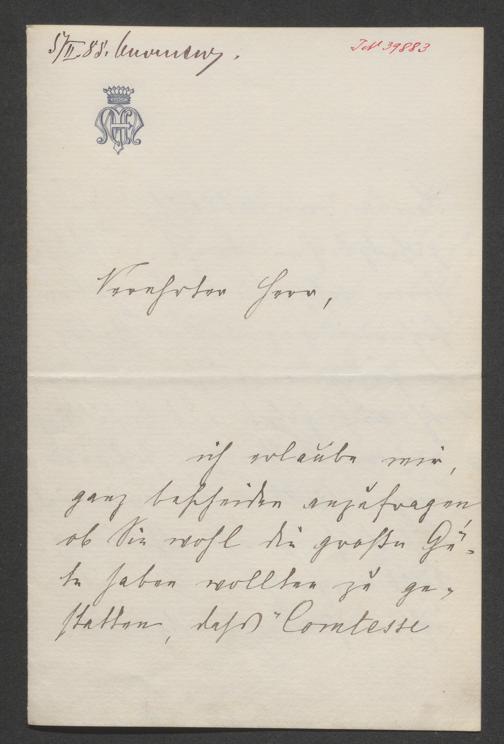 5/II 88.
I.N 39883
Verehrter Herr,
ich erlaube mir,
ganz bescheiden anzufragen
ob Sie wohl die große Gü-
te haben wollten zu ge-
statten, daß "Comtesse